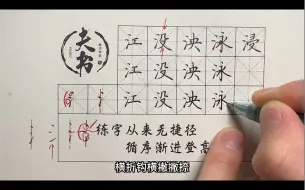 夫书
江没泱泳浸
江没泱泳
江没泱泳
练字从来无捷径
循序渐进登高
横折钩横撇撇捺